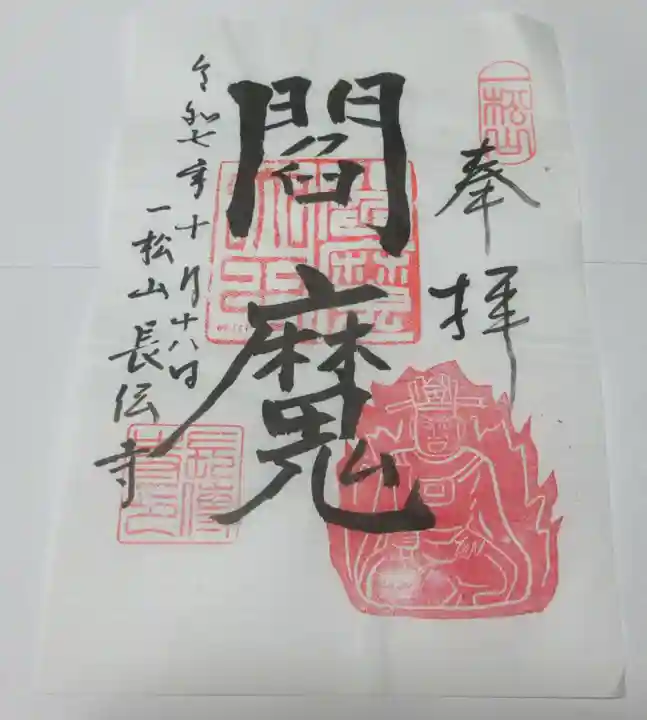 一松山
奉拝
閻魔
閻魔大王
令和七年十月十八日
一松山長伝寺